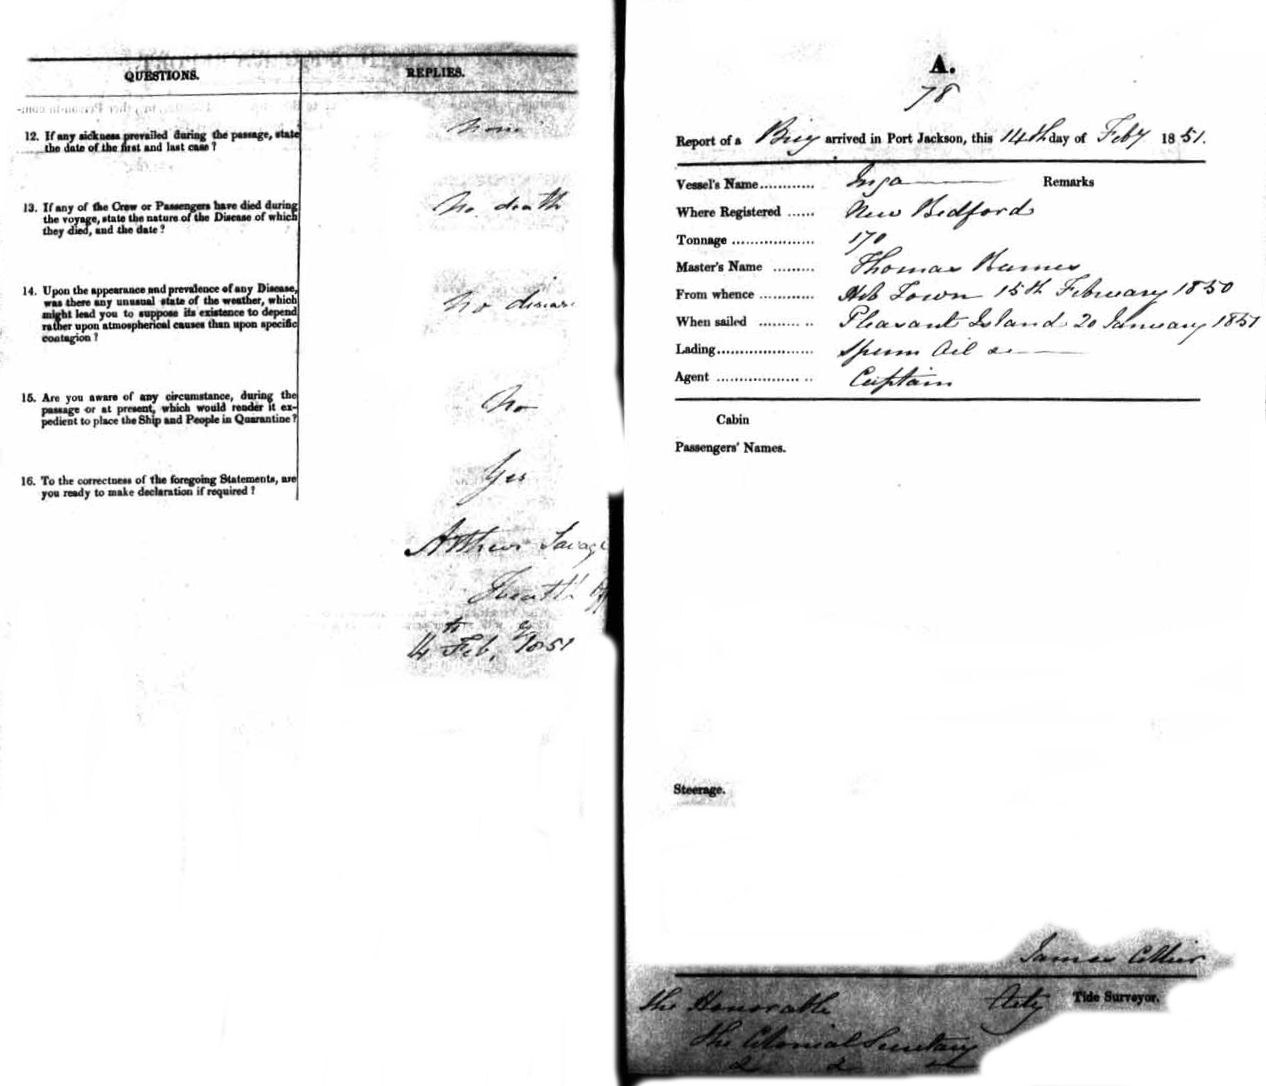 QUESTIONS.
REPLIES.
12. If any sickness prevailed during the passage, state
the date of the first and last case?
None
13. If any of the Crew or Passengers have died during
the voyage, state the nature of the Disease of which
they died, and the date?
No death
14. Upon the appearance and prevalence of any Disease,
was there any unusual state of the weather, which
might lead you to suppose its existence to depend
rather upon atmospherical causes than upon specific
contagion?
No disease
15. Are you aware of any circumstance, during the
passage or at present, which would render it ex-
pedient to place the Ship and People in Quarantine?
No
16. To the correctness of the foregoing Statements, are
you ready to make declaration if required?
Yes
Arthur Savage
Health
14th Feby 1851
A.
78
Report of a Brig arrived in Port Jackson, this 14th day of Feby 1851.
Vessel's Name............ Inga Remarks
Where Registered ...... New Bedford
Tonnage .................. 170
Master's Name ......... Thomas Barnes
From whence ............ Hob Town 15th February 1850
When sailed ......... .. Pleasant Island 20 January 1851
Lading..................... Sperm Oil
Agent .................. .. Captain
Cabin
Passengers' Names.
Steerage.
James Collier
Actg Tide Surveyor.
The Honorable
The Colonial Secretary